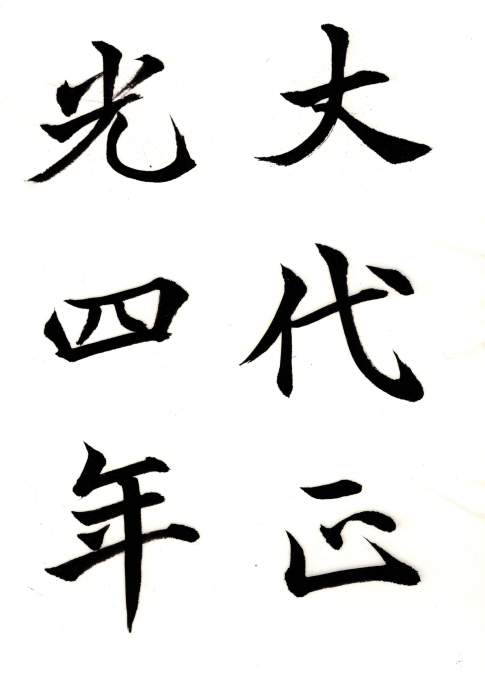 大代正
光四年